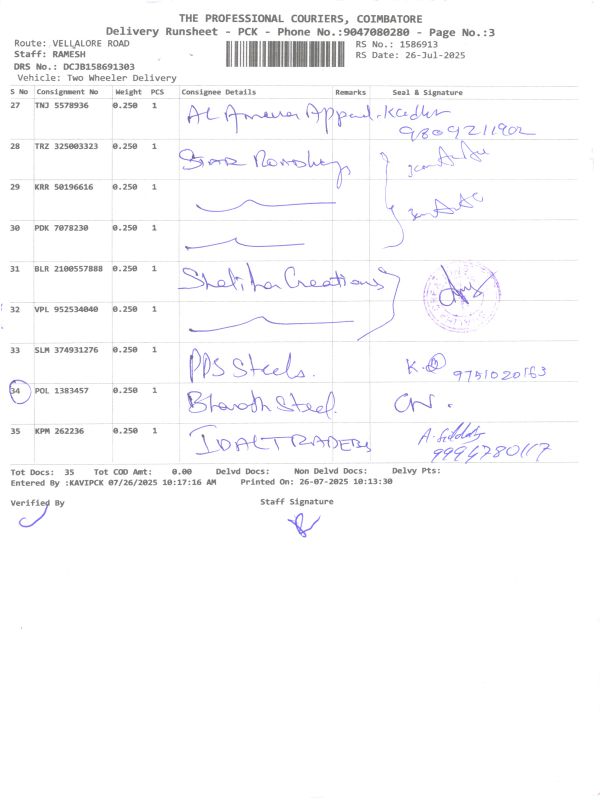 THE PROFESSIONAL COURIERS, COIMBATORE
Delivery Runsheet - PCK - Phone No.:9047080280 - Page No.:3
Route: VELLALORE ROAD RS No.: 1586913
Staff: RAMESH RS Date: 26-Jul-2025
DRS No.: DCJB158691303
Vehicle: Two Wheeler Delivery
S No Consignment No Weight PCS Consignee Details Remarks Seal & Signature
27 TNJ 5578936 0.250 1 AL Ameer Appael. Kader
9809211902
28 TRZ 325003323 0.250 1 Star
29 KRR 50196616 0.250 1
30 PDK 7078230 0.250 1
31 BLR 2100557888 0.250 1 Creations
32 VPL 952534040 0.250 1
33 SLM 374931276 0.250 1 PPS Steels. K.
9751020163
34 POL 1383457 0.250 1 Bharath Steel. CN.
35 KPM 262236 0.250 1 IDAL TRADERS A.
9994780117
Tot Docs: 35 Tot COD Amt: 0.00 Delvd Docs: Non Delvd Docs: Delvy Pts:
Entered By :KAVIPCK 07/26/2025 10:17:16 AM Printed On: 26-07-2025 10:13:30
Verified By Staff Signature